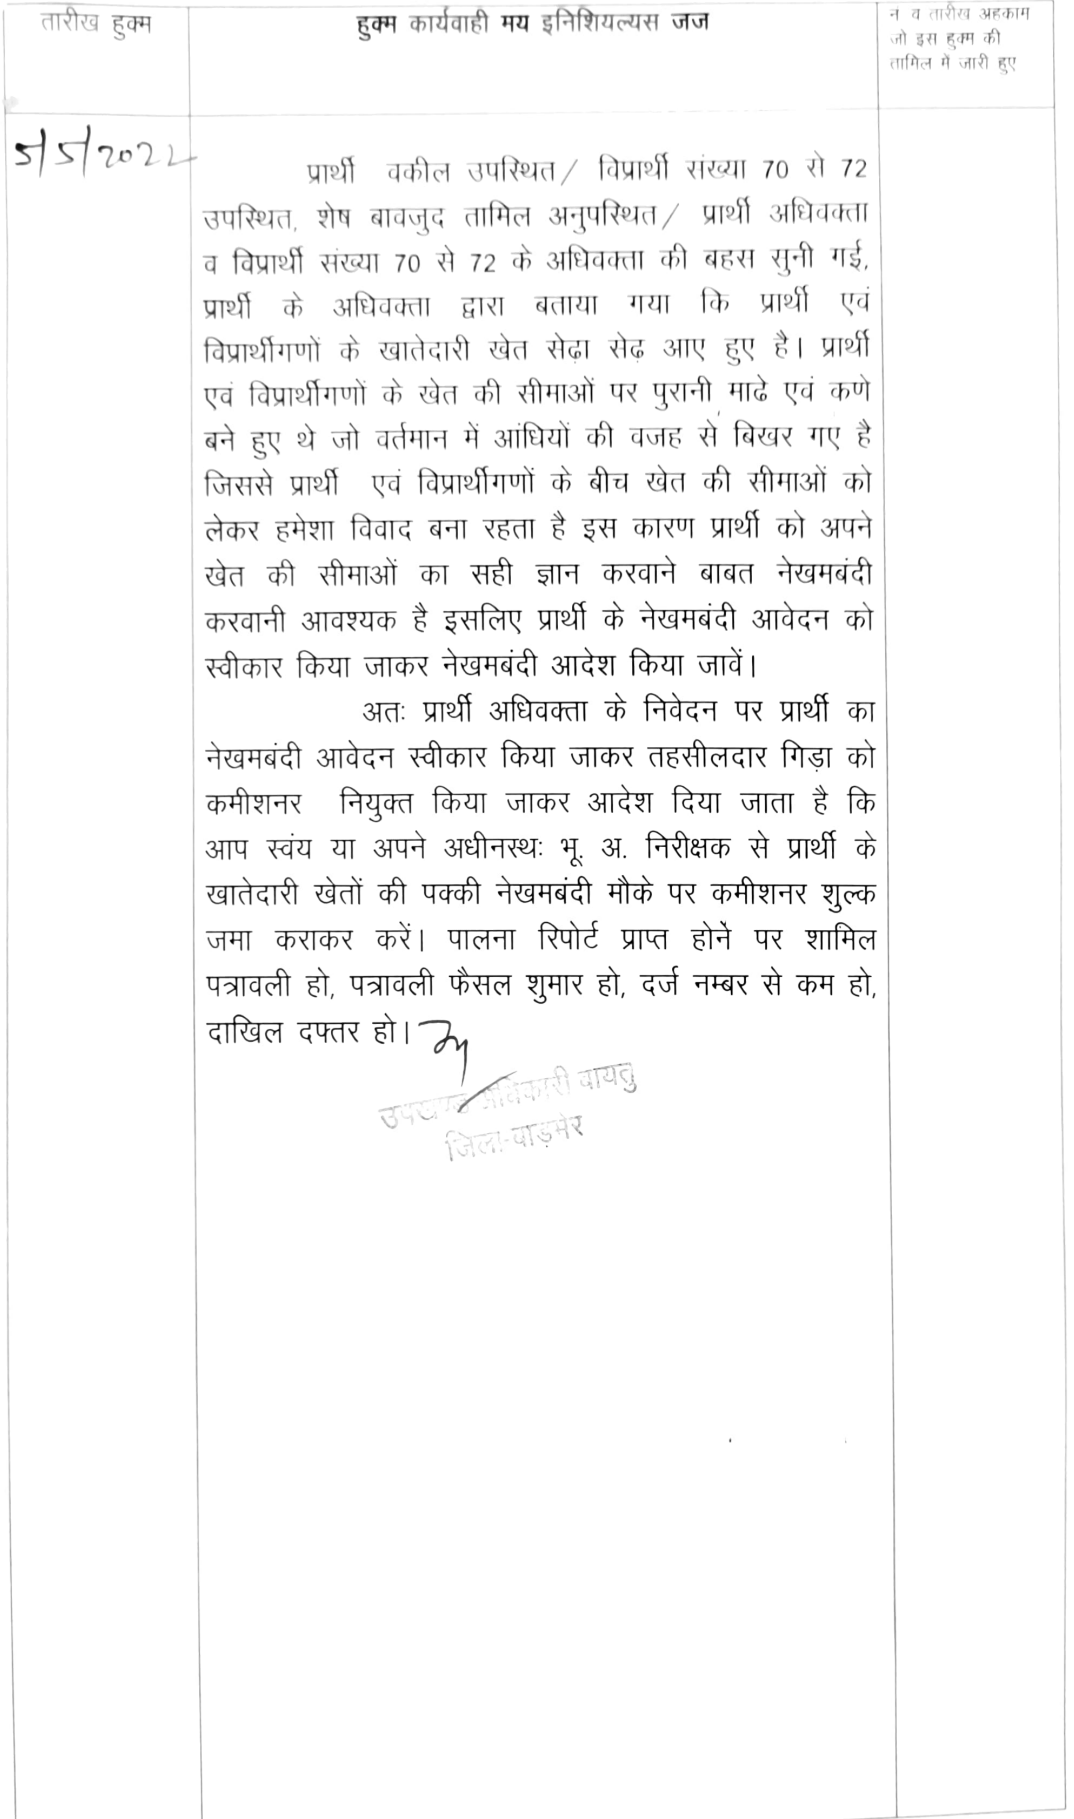 तारीख हुक्म
हुक्म कार्यवाही मय इनिशियल्यस जज
नं व तारीख अहकाम
जो इस हुक्म की
तामिल में जारी हुए
5/5/2022
प्रार्थी वकील उपस्थित/ विप्रार्थी संख्या 70 से 72
उपस्थित, शेष बावजुद तामिल अनुपस्थित/ प्रार्थी अधिवक्ता
व विप्रार्थी संख्या 70 से 72 के अधिवक्ता की बहस सुनी गई,
प्रार्थी के अधिवक्ता द्वारा बताया गया कि प्रार्थी एवं
विप्रार्थीगणों के खातेदारी खेत सेढ़ा सेढ़ आए हुए है। प्रार्थी
एवं विप्रार्थीगणों के खेत की सीमाओं पर पुरानी माढे एवं कणे
बने हुए थे जो वर्तमान में आंधियों की वजह से बिखर गए है
जिससे प्रार्थी एवं विप्रार्थीगणों के बीच खेत की सीमाओं को
लेकर हमेशा विवाद बना रहता है इस कारण प्रार्थी को अपने
खेत की सीमाओं का सही ज्ञान करवाने बाबत नेखमबंदी
करवानी आवश्यक है इसलिए प्रार्थी के नेखमबंदी आवेदन को
स्वीकार किया जाकर नेखमबंदी आदेश किया जावें।
अतः प्रार्थी अधिवक्ता के निवेदन पर प्रार्थी का
नेखमबंदी आवेदन स्वीकार किया जाकर तहसीलदार गिड़ा को
कमीशनर नियुक्त किया जाकर आदेश दिया जाता है कि
आप स्वंय या अपने अधीनस्थः भू. अ. निरीक्षक से प्रार्थी के
खातेदारी खेतों की पक्की नेखमबंदी मौके पर कमीशनर शुल्क
जमा कराकर करें। पालना रिपोर्ट प्राप्त होनें पर शामिल
पत्रावली हो, पत्रावली फैसल शुमार हो, दर्ज नम्बर से कम हो,
दाखिल दफ्तर हो।
उपखण्ड अधिकारी बायतु
जिला-बाड़मेर